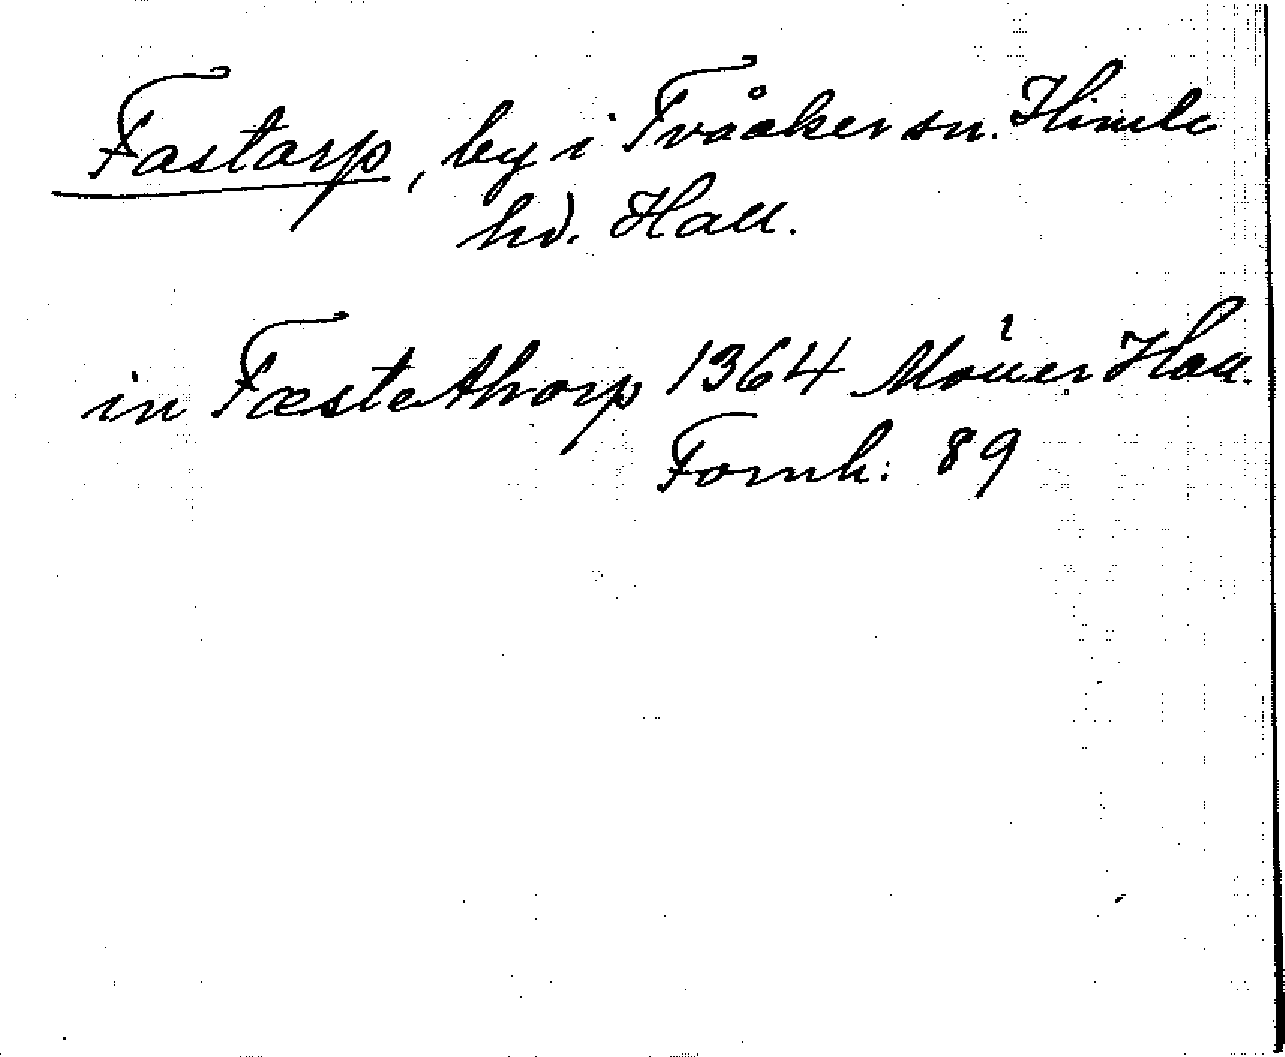 Fastarp, by i Tvååker sn. Himle
hd. Hall.
in Fæstethorp 1364 Möller Hall.
Fornh: 89